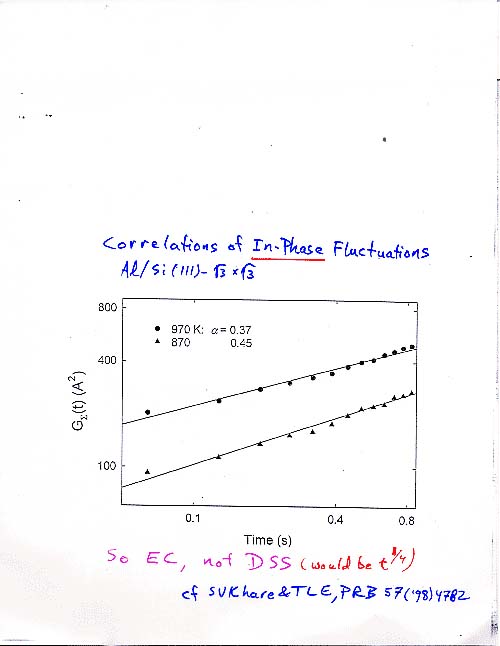 Correlations of In-Phase Fluctuations
Al/Si(111)-√3×√3
800
970 K: α = 0.37
870 0.45
400
G_Σ(t) (A²)
100
0.1 0.4 0.8
Time (s)
So EC, not DSS (would be t^1/4)
cf SVKhare & TLE, PRB 57('98)4782